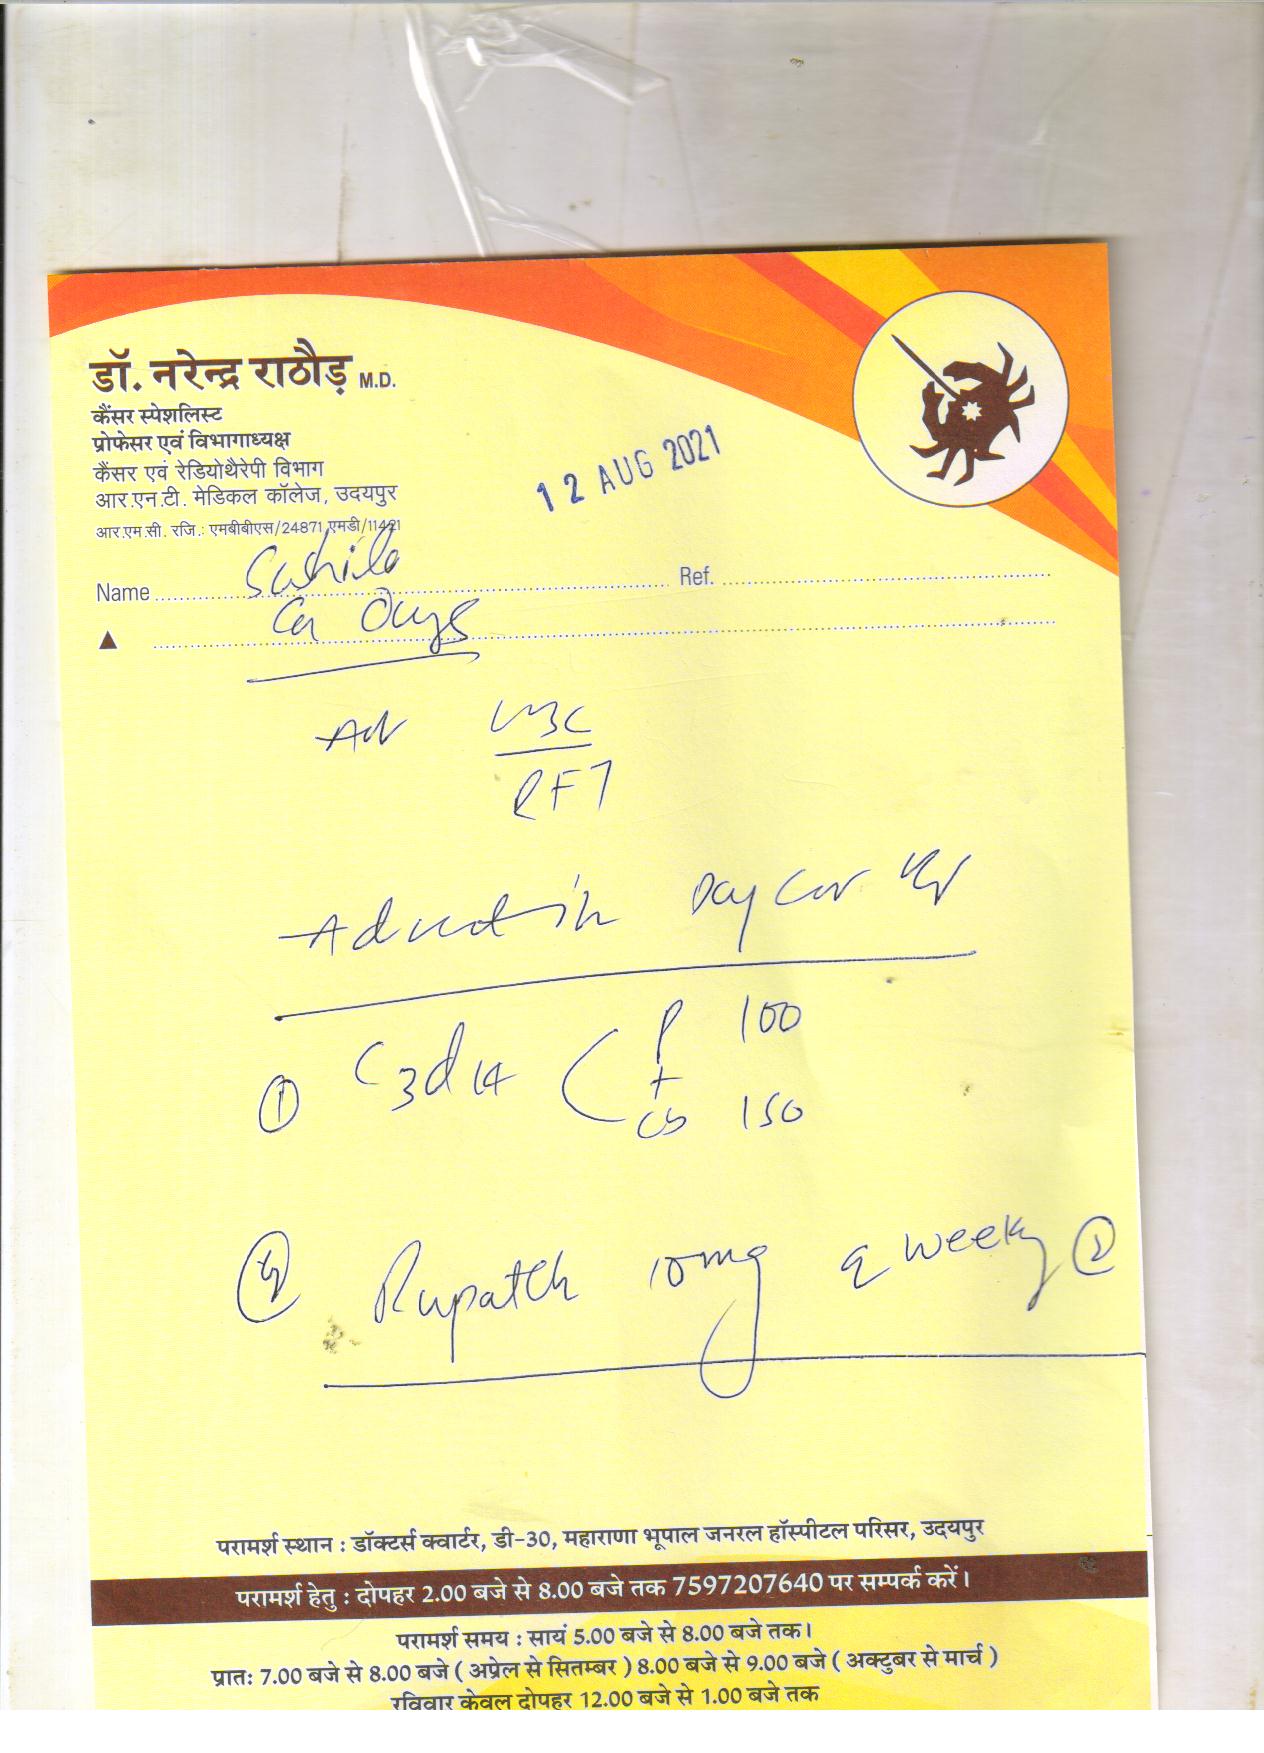 डॉ. नरेन्द्र राठौड़ M.D.
कैंसर स्पेशलिस्ट
प्रोफेसर एवं विभागाध्यक्ष
कैंसर एवं रेडियोथैरेपी विभाग
आर.एन.टी. मेडिकल कॉलेज, उदयपुर
आर.एम.सी. रजि.: एमबीबीएस/24871 एमडी/11421
12 AUG 2021
Name Ref.
Ca
Adv CBC
RFT
Day Care
① C3d14 P 100
+
Cb 150
10mg weekly ②
परामर्श स्थान : डॉक्टर्स क्वार्टर, डी-30, महाराणा भूपाल जनरल हॉस्पीटल परिसर, उदयपुर
परामर्श हेतु : दोपहर 2.00 बजे से 8.00 बजे तक 7597207640 पर सम्पर्क करें।
परामर्श समय : सायं 5.00 बजे से 8.00 बजे तक।
प्रातः 7.00 बजे से 8.00 बजे ( अप्रेल से सितम्बर ) 8.00 बजे से 9.00 बजे ( अक्टुबर से मार्च )
रविवार केवल दोपहर 12.00 बजे से 1.00 बजे तक